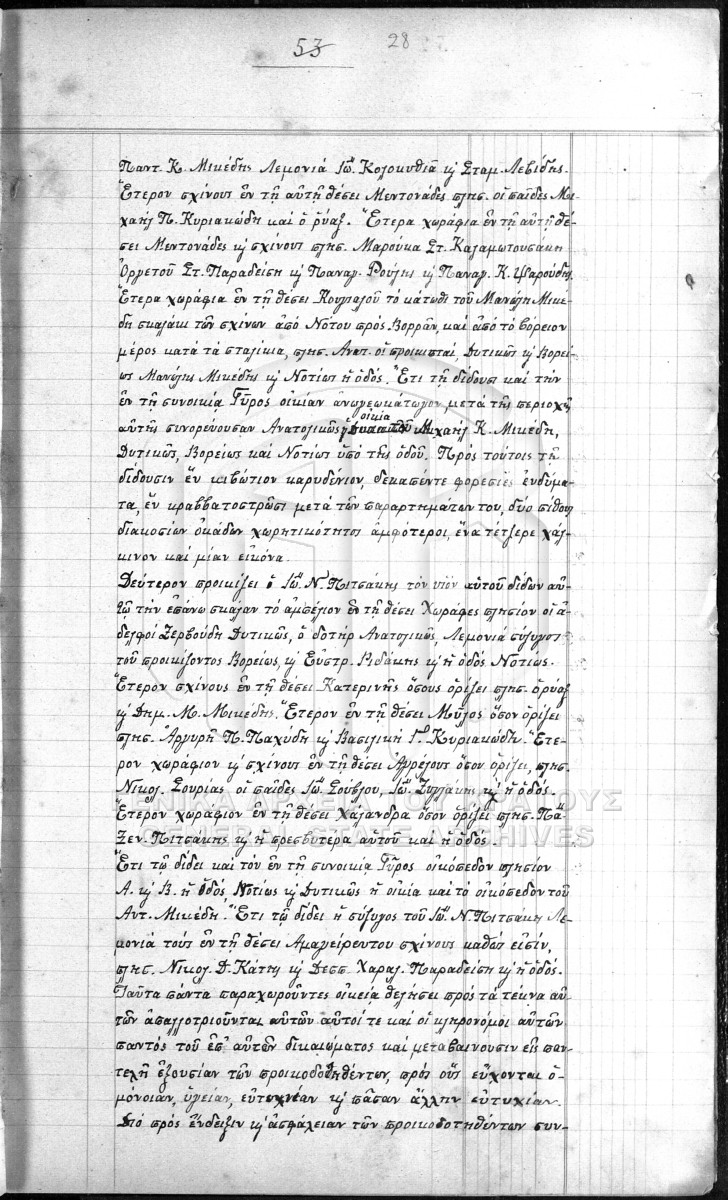 53 28
Παντ. Κ. Μικέδης Λεμονιά Ἰω. Κολοκυθιᾶ κ Σταμ. Λεβίδης.
Ἕτερον σχίνους ἐν τῇ αὐτῇ θέσει Μεντονάδες πλησ. οἱ παῖδες Μι-
χαὴλ Π. Κυριακώδη καὶ ὁ ρύαξ. Ἕτερα χωράφια ἐν τῇ αὐτῇ θέ-
σει Μεντονάδες κ σχίνους πλησ. Μαρούκα Στ. Καλαμωτουσάκη
Ὀργετοῦ Στ. Παραδείση κ Παναγ. Ρούλης κ Παναγ. Κ. Ψαρούδης.
Ἕτερα χωράφια ἐν τῇ θέσει τὸ κάτωθι τοῦ Μανώλη Μικέ-
δη σκαλάκι τῶν σχίνων ἀπὸ Νότου πρὸς Βορρᾶν, καὶ ἀπὸ τὸ βόρειον
μέρος κατὰ τὰ σταλίκια, πλησ. Ἀνατ. οἱ προικισταί, Δυτικῶς κ Βορεί-
ως Μανώλης Μικέδης κ Νοτίως ἡ ὁδός. Ἔτι τῇ δίδουσι καὶ τὴν
ἐν τῇ συνοικίᾳ Γῦρος οἰκίαν ἀνωγεωκάτωγον, μετὰ τῆς περιοχῆς
αὐτῆς συνορεύουσαν Ἀνατολικῶς οἰκία Μιχαὴλ Κ. Μικέδη,
Δυτικῶς, Βορείως καὶ Νοτίως ὑπὸ τῆς ὁδοῦ. Πρὸς τούτοις τῇ
δίδουσιν ἓν κιβώτιον καρυδένιον, δεκαπέντε φορεσιὲς ἐνδύμα-
τα, ἓν κραββατοστρῶσι μετὰ τῶν παραρτημάτων του, δύο πίθους
διακοσίων ὀκάδων χωρητικότητος ἀμφότεροι, ἕνα τέτζερε χάλ-
κινον καὶ μίαν εἰκόνα.
Δεύτερον προικίζει ὁ Ἰω. Ν. Πιτσάκης τὸν υἱὸν αὐτοῦ δίδων αὐ-
τῷ τὴν ἐπάνω σκάλαν τὸ ἀμπέλιον ἐν τῇ θέσει Χωράφες πλησίον οἱ ἀ-
δελφοὶ Ζερβούδη Δυτικῶς, ὁ δοτὴρ Ἀνατολικῶς, Λεμονιὰ σύζυγος
τοῦ προικίζοντος Βορείως, κ Εὐστρ. Βιδάκης κ ἡ ὁδός Νοτίως.
Ἕτερον σχίνους ἐν τῇ θέσει Κατερινῆς ὅσους ὁρίζει πλησ. ὁ ρύαξ
κ Δημ. Μ. Μικέδης. Ἕτερον ἐν τῇ θέσει Μῦλος ὅσον ὁρίζει
πλησ. Ἀργυρῆ Π. Παχύδη κ Βασιλικὴ Γ. Κυριακώδη. Ἕτε-
ρον χωράφιον κ σχίνους ἐν τῇ θέσει ὅσον ὁρίζει, πλησ.
Νικολ. Σουρίας οἱ παῖδες Ἰω. Σούβλου, Ἰω. Ζυγλάκης κ ἡ ὁδός.
Ἕτερον χωράφιον ἐν τῇ θέσει Χάλανδρα ὅσον ὁρίζει πλησ. Πα.
Ξεν. Πιτσάκης κ ἡ πρεσβυτέρα αὐτοῦ καὶ ἡ ὁδός.
Ἔτι τῷ δίδει καὶ τὸν ἐν τῇ συνοικίᾳ Γῦρος οἰκόπεδον πλησίον
Α. κ Β. ἡ ὁδὸς Νοτίως κ Δυτικῶς ἡ οἰκία καὶ τὸ οἰκόπεδον τοῦ
Ἀντ. Μικέδη. Ἔτι τῷ δίδει ἡ σύζυγος τοῦ Ἰω. Ν. Πιτσάκη Λε-
μονιὰ τοὺς ἐν τῇ θέσει Ἀμαγείρευτου σχίνους καθὼς εἰσίν,
πλησ. Νικολ. Δ. Κάτης κ Δεσπ. Χαραλ. Παραδείση κ ἡ ὁδός.
Ταῦτα πάντα παραχωροῦντες οἰκείᾳ θελήσει πρὸς τὰ τέκνα αὐ-
τῶν ἀπαλλοτριοῦνται αὐτῶν αὐτοί τε καὶ οἱ κληρονόμοι αὐτῶν
παντὸς τοῦ ἐπ' αὐτῶν δικαιώματος καὶ μεταβαίνουσιν εἰς παν-
τελῆ ἐξουσίαν τῶν προικοδοτηθέντων, πρὸς οὓς εὔχονται ὁ-
μόνοιαν, ὑγείαν, εὐτεχνίαν κ πᾶσαν ἄλλην εὐτυχίαν.
Διὸ πρὸς ἔνδειξιν κ ἀσφάλειαν τῶν προικοδοτηθέντων συν-
ΓΕΝΙΚΑ ΑΡΧΕΙΑ ΤΟΥ ΚΡΑΤΟΥΣ
GENERAL STATE ARCHIVES